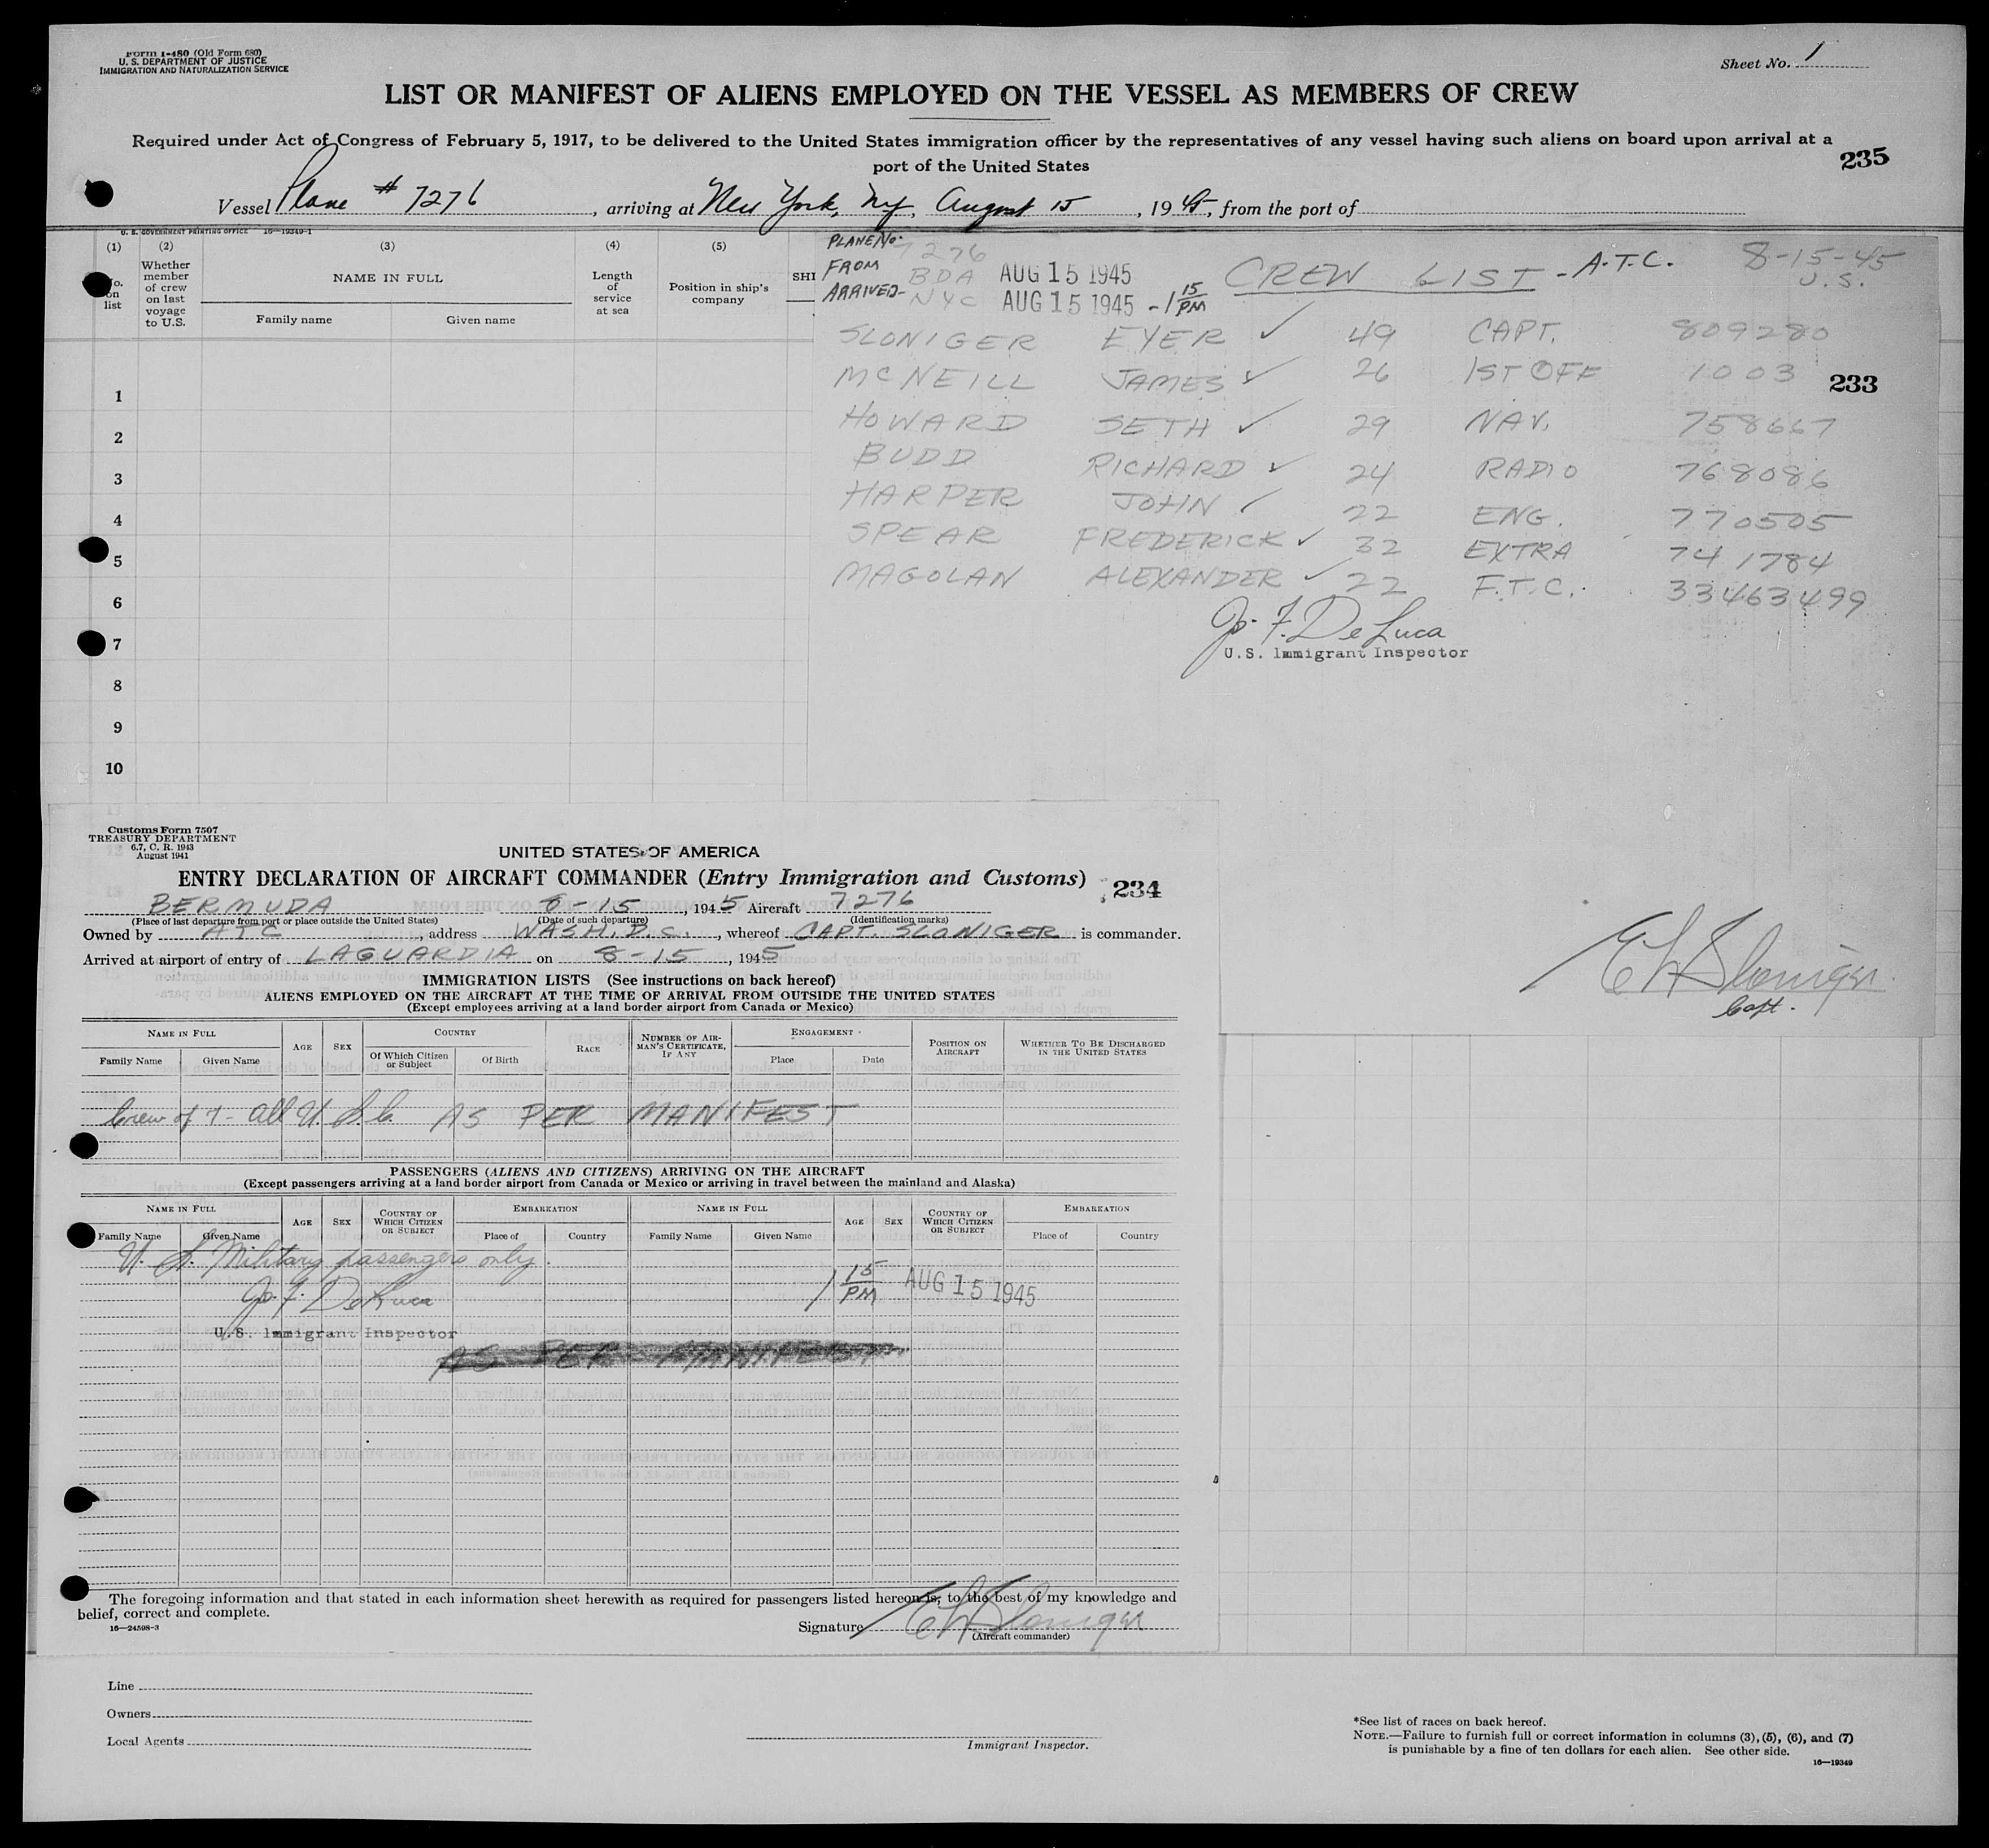 Form I-480 (Old Form 680)
U. S. DEPARTMENT OF JUSTICE
IMMIGRATION AND NATURALIZATION SERVICE
Sheet No. 1
LIST OR MANIFEST OF ALIENS EMPLOYED ON THE VESSEL AS MEMBERS OF CREW
Required under Act of Congress of February 5, 1917, to be delivered to the United States immigration officer by the representatives of any vessel having such aliens on board upon arrival at a
port of the United States
235
Vessel Plane # 7276, arriving at New York, NY, August 15, 1945, from the port of
U. S. GOVERNMENT PRINTING OFFICE 16—19349-1
(1) (2) (3) (4) (5)
No. on list
Whether member of crew on last voyage to U.S.
NAME IN FULL
Family name Given name
Length of service at sea
Position in ship's company
SHI
1
2
3
4
5
6
7
8
9
10
PLANE No. 7276
FROM BDA AUG 15 1945
ARRIVED- NYC AUG 15 1945 - 1 15 PM
CREW LIST - A.T.C. 8-15-45
U.S.
SLONIGER EYER ✓ 49 CAPT. 809280
MCNEILL JAMES ✓ 26 1ST OFF 1003
233
HOWARD SETH ✓ 29 NAV. 758667
BUDD RICHARD ✓ 24 RADIO 768086
HARPER JOHN ✓ 22 ENG. 770505
SPEAR FREDERICK ✓ 32 EXTRA 741784
MAGOLAN ALEXANDER ✓ 22 F.T.C. 33463499
Jo. F. DeLuca
U.S. Immigrant Inspector
E L Sloniger
Capt.
Customs Form 7507
TREASURY DEPARTMENT
6.7, C. R. 1943
August 1941
UNITED STATES OF AMERICA
ENTRY DECLARATION OF AIRCRAFT COMMANDER (Entry Immigration and Customs)
234
BERMUDA 8-15, 1945 Aircraft 7276
(Place of last departure from port or place outside the United States) (Date of such departure) (Identification marks)
Owned by ATC, address WASH. D.C., whereof CAPT. SLONIGER is commander.
Arrived at airport of entry of LAGUARDIA on 8-15, 1945
IMMIGRATION LISTS (See instructions on back hereof)
ALIENS EMPLOYED ON THE AIRCRAFT AT THE TIME OF ARRIVAL FROM OUTSIDE THE UNITED STATES
(Except employees arriving at a land border airport from Canada or Mexico)
NAME IN FULL AGE SEX COUNTRY RACE NUMBER OF AIRMAN'S CERTIFICATE, IF ANY ENGAGEMENT POSITION ON AIRCRAFT WHETHER TO BE DISCHARGED IN THE UNITED STATES
Family Name Given Name Of Which Citizen or Subject Of Birth Place Date
Crew of 7 - all U.S.C. AS PER MANIFEST
PASSENGERS (ALIENS AND CITIZENS) ARRIVING ON THE AIRCRAFT
(Except passengers arriving at a land border airport from Canada or Mexico or arriving in travel between the mainland and Alaska)
NAME IN FULL AGE SEX COUNTRY OF WHICH CITIZEN OR SUBJECT EMBARKATION NAME IN FULL AGE SEX COUNTRY OF WHICH CITIZEN OR SUBJECT EMBARKATION
Family Name Given Name Place of Country Family Name Given Name Place of Country
U. S. Military passengers only.
Jo. F. DeLuca 1 15 PM AUG 15 1945
U.S. Immigrant Inspector
AS PER MANIFEST
The foregoing information and that stated in each information sheet herewith as required for passengers listed hereon is, to the best of my knowledge and
belief, correct and complete.
16—24598-3
Signature E L Sloniger
(Aircraft commander)
Line
Owners
Local Agents
Immigrant Inspector.
*See list of races on back hereof.
NOTE.—Failure to furnish full or correct information in columns (3), (5), (6), and (7)
is punishable by a fine of ten dollars for each alien. See other side.
16—19349